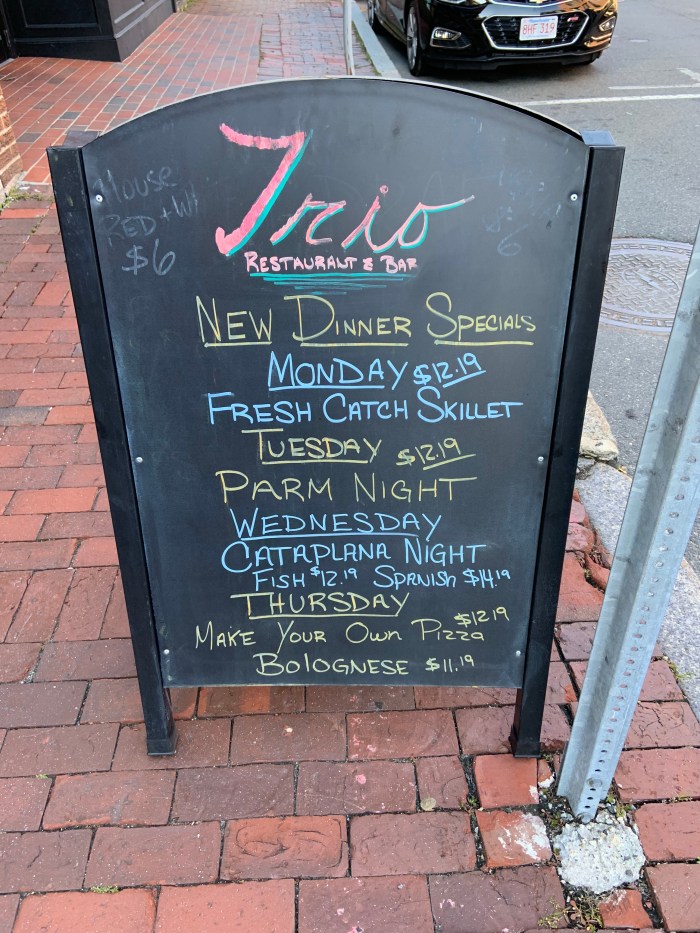 BHF 319
House
RED + W
$6
Trio
RESTAURANT & BAR
NEW DINNER SPECIALS
MONDAY $12.19
FRESH CATCH SKILLET
TUESDAY $12.19
PARM NIGHT
WEDNESDAY
CATAPLANA NIGHT
FISH $12.19 SPANISH $14.19
THURSDAY
MAKE YOUR OWN PIZZA $12.19
BOLOGNESE $11.19